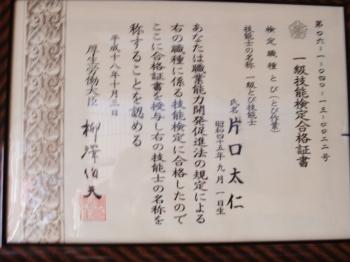 第〇六-一-〇四〇-一三-〇〇二二号
一級技能検定合格証書
検定職種 とび(とび作業)
技能士の名称 一級とび技能士
氏名 片口太仁
昭和四十五年九月一日生
あなたは職業能力開発促進法の規定による
右の職種に係る技能検定に合格したので
ここに合格証書を授与し右の技能士の名称を
称することを認める
平成十八年十月三日
厚生労働大臣 柳澤伯夫